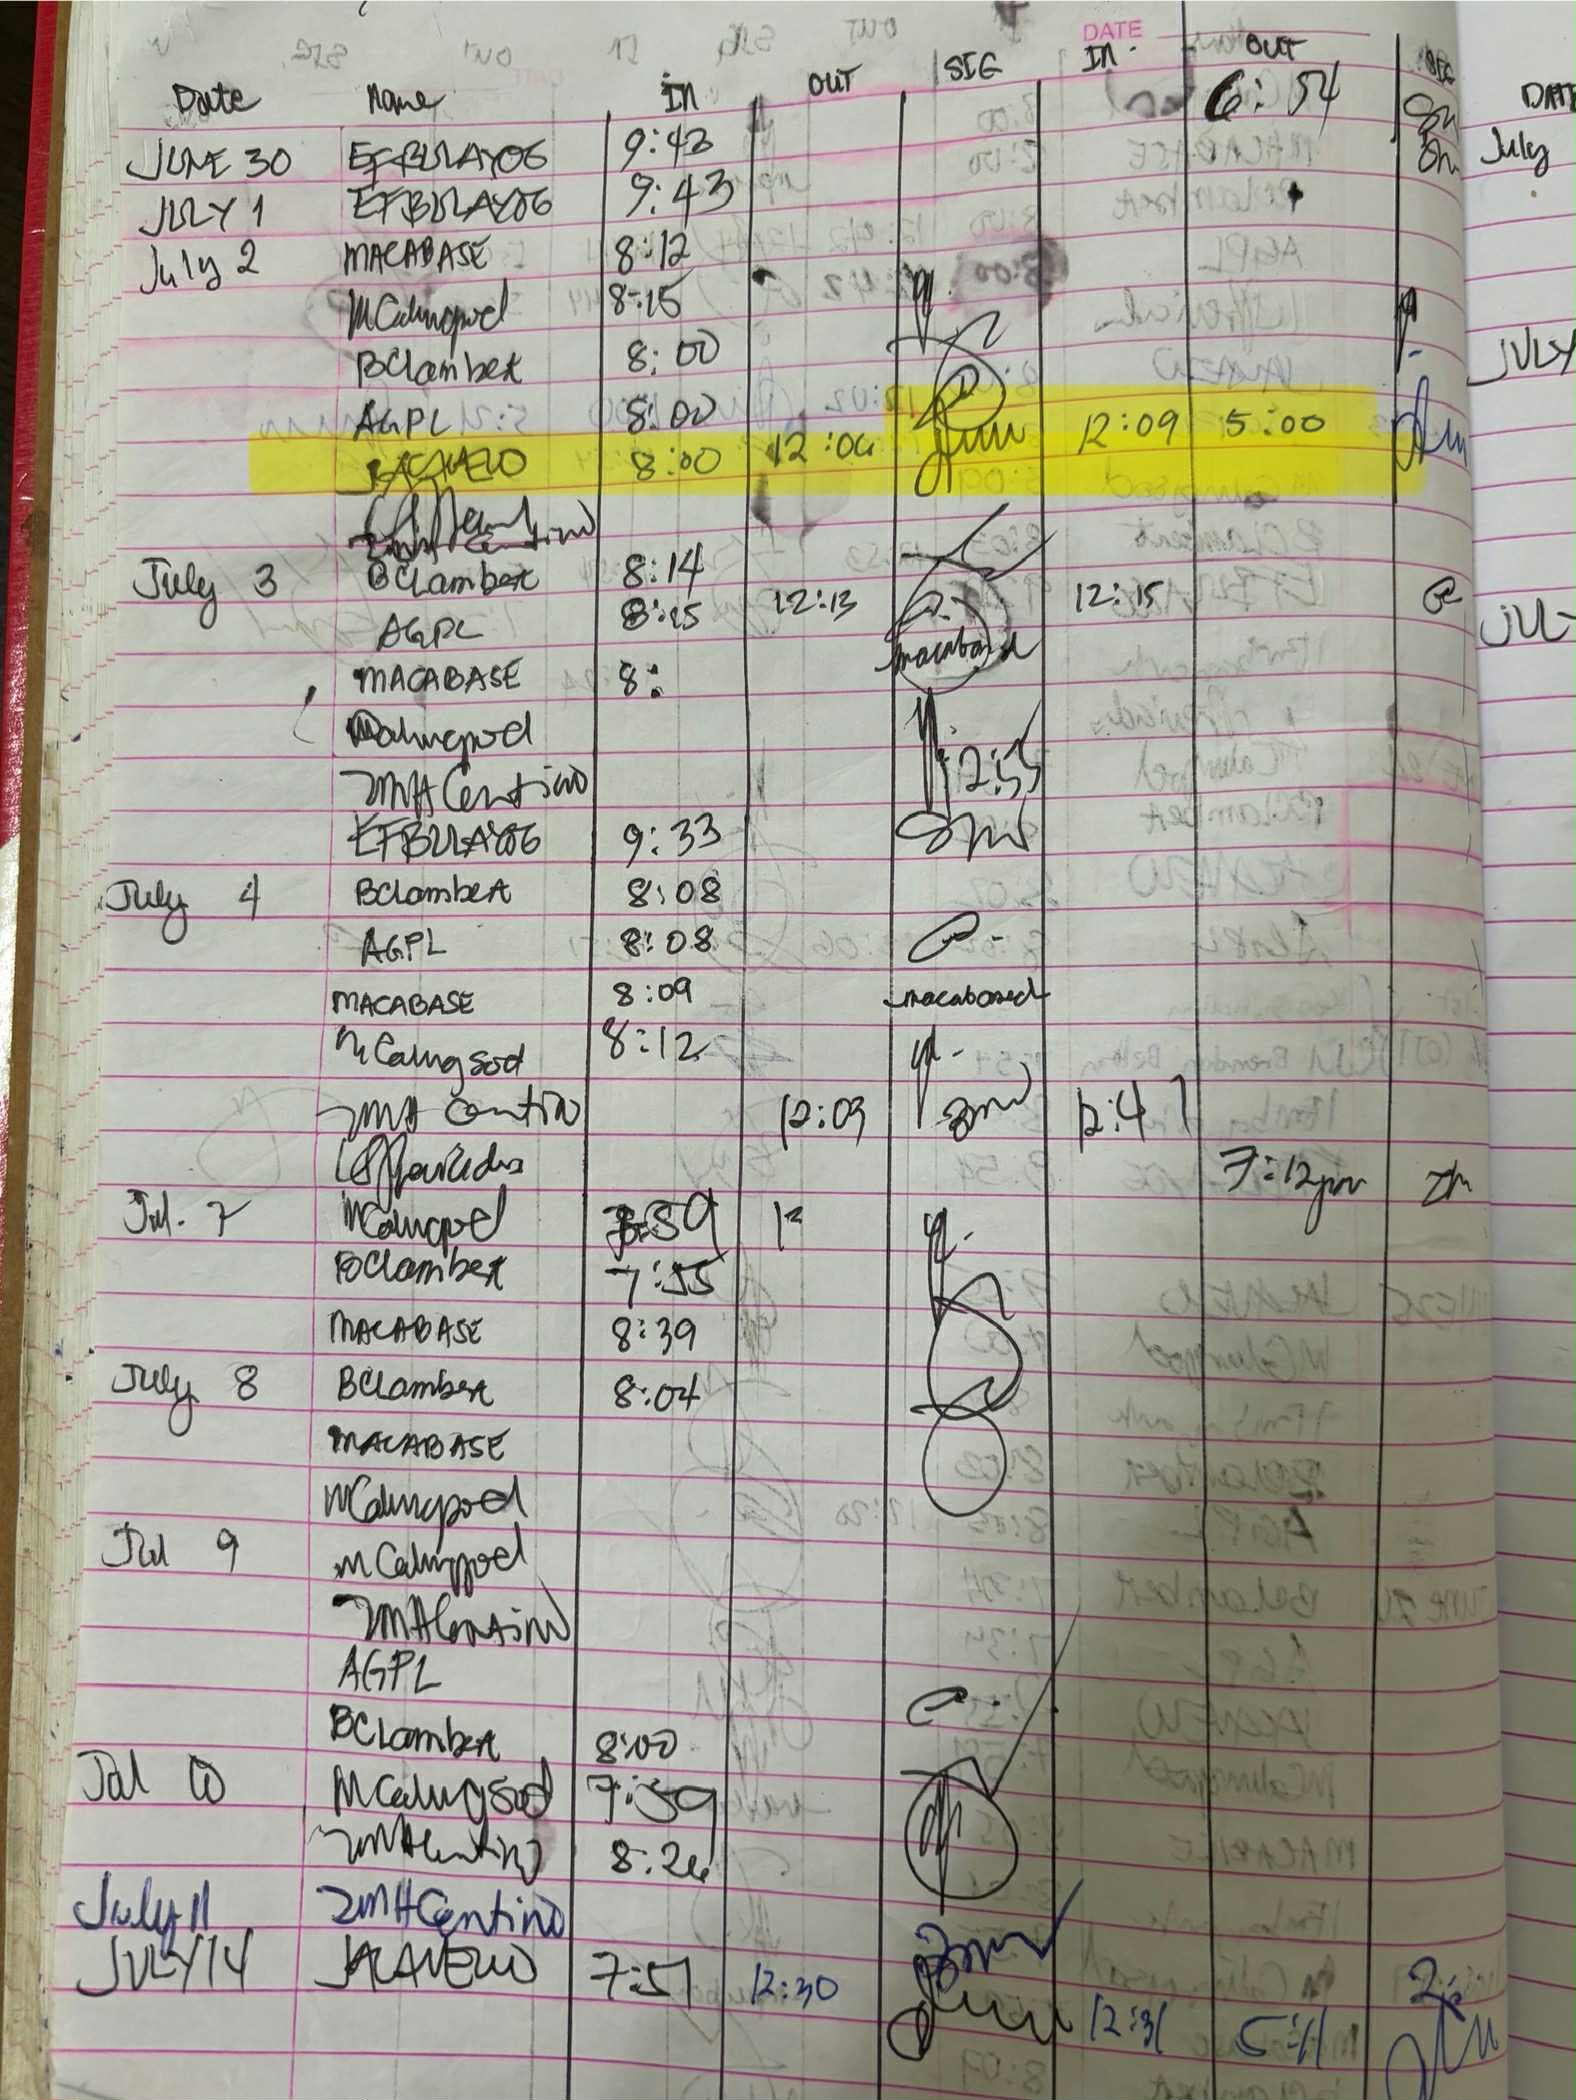 DATE
Date Name IN OUT SIG IN OUT SIG
6:54
JUNE 30 EFBULAYOG 9:43
JULY 1 EFBULAYOG 9:43
July 2 MACABASE 8:12
MCalingsod 8:15
BClambert 8:00
AGPL 8:00
8:00 12:06 12:09 5:00
July 3 BClambert 8:14
AGPL 8:15 12:13 12:15
MACABASE 8: macabased
MCalingsod
ZMHCentino 12:55
EFBULAYOG 9:33
July 4 BClambert 8:08
AGPL 8:08
MACABASE 8:09 macabased
MCalingsod 8:12
ZMHCentino 12:03 12:47
7:12pm
Jul. 7 MCalingsod 7:59 12
BClambert 7:55
MACABASE 8:39
July 8 BClambert 8:04
MACABASE
MCalingsod
Jul 9 MCalingsod
ZMHCentino
AGPL
BClambert 8:00
Jul 10 MCalingsod 7:59
ZMHCentino 8:26
July 11 ZMHCentino
JULY 14 JACAVEWO 7:51 12:30 12:31 5:11
DATE
July
JULY